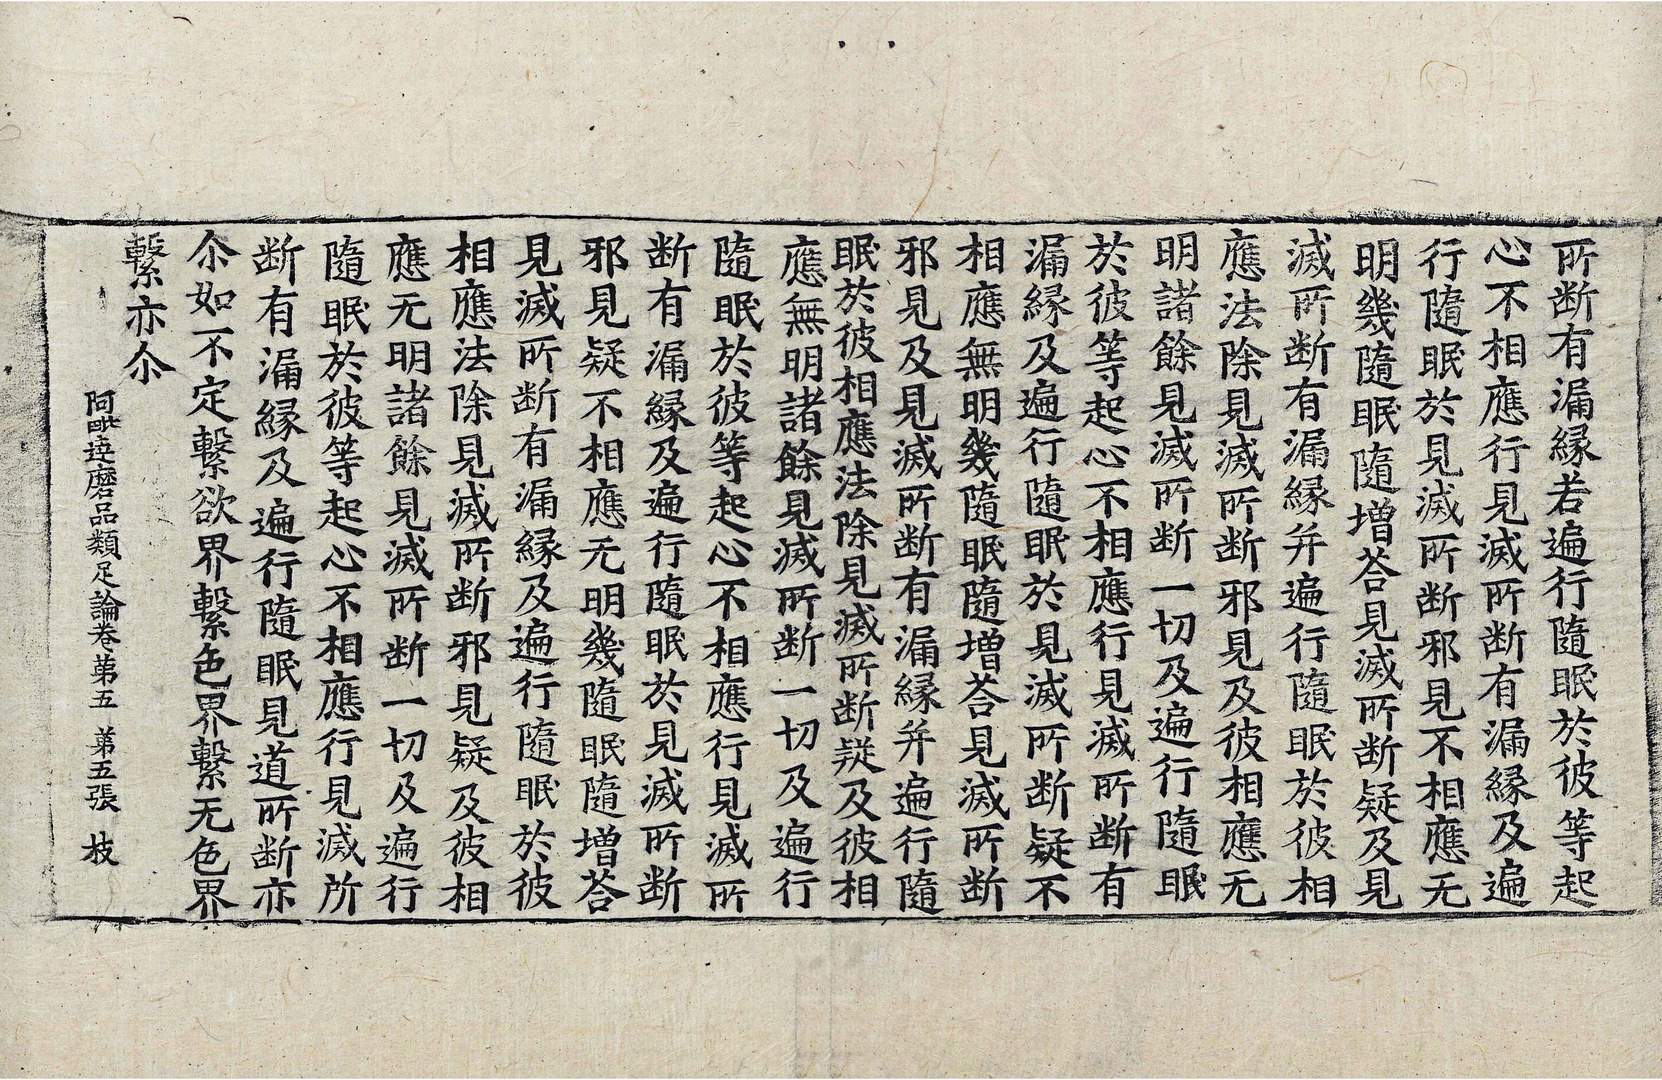 所断有漏縁若遍行隨眠於彼等起
心不相應行見滅所断有漏縁及遍
行隨眠於見滅所断邪見不相應无
明幾隨眠隨增荅見滅所断疑及見
滅所断有漏縁并遍行隨眠於彼相
應法除見滅所断邪見及彼相應无
明諸餘見滅所断一切及遍行隨眠
於彼等起心不相應行見滅所断有
漏縁及遍行隨眠於見滅所断疑不
相應無明幾隨眠隨增荅見滅所断
邪見及見滅所断有漏縁并遍行隨
眠於彼相應法除見滅所断疑及彼相
應無明諸餘見滅所断一切及遍行
隨眠於彼等起心不相應行見滅所
断有漏縁及遍行隨眠於見滅所断
邪見疑不相應无明幾隨眠隨增荅
見滅所断有漏縁及遍行隨眠於彼
相應法除見滅所断邪見疑及彼相
應无明諸餘見滅所断一切及遍行
隨眠於彼等起心不相應行見滅所
断有漏縁及遍行隨眠見道所断亦
尒如不定繫欲界繫色界繫无色界
繫亦尒
阿毗達磨品類足論卷苐五 苐五張 枝